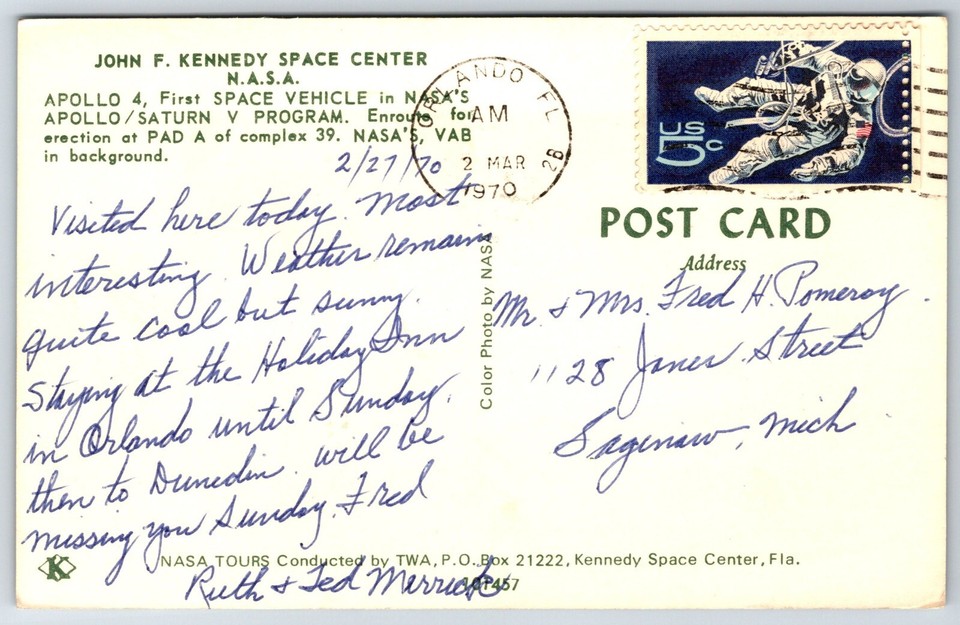 JOHN F. KENNEDY SPACE CENTER
N.A.S.A.
APOLLO 4, First SPACE VEHICLE in NASA'S
APOLLO/SATURN V PROGRAM. Enroute for
erection at PAD A of complex 39. NASA'S, VAB
in background.
2/27/70
Visited here today. Most
interesting. Weather remains
quite cool but sunny.
Staying at the Holiday Inn
in Orlando until Sunday,
then to Dunedin. will be
missing you Sunday, Fred
Ruth & Ted Merrick
ORLANDO FL
AM
2 MAR
1970
2B
US
5c
POST CARD
Address
Mr. & Mrs. Fred H. Pomeroy.
1128 Janes Street
Saginaw, Mich
Color Photo by NASA
K
NASA TOURS Conducted by TWA, P.O. Box 21222, Kennedy Space Center, Fla.